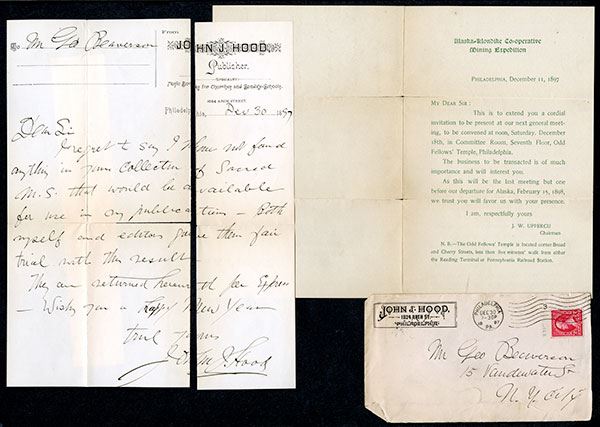 From
JOHN J. HOOD.
Publisher.
SPECIALTY
Music for Churches and Sunday-Schools.
1024 ARCH STREET,
To Mr Geo Beaverson
Philadelphia, Dec 30 1897
Dear Sir
I regret to say I have not found
anything in your collection of Sacred
M.S. that would be available
for use in my publications - Both
myself and editors gave them fair
trial with this result
They are returned herewith per Express
- Wish you a happy New Year
truly yours
John J Hood
Alaska-Klondike Co-operative
Mining Expedition
PHILADELPHIA, December 11, 1897
MY DEAR SIR:
This is to extend you a cordial
invitation to be present at our next general meet-
ing, to be convened at noon, Saturday, December
18th, in Committee Room, Seventh Floor, Odd
Fellows' Temple, Philadelphia.
The business to be transacted is of much
importance and will interest you.
As this will be the last meeting but one
before our departure for Alaska, February 15, 1898,
we trust you will favor us with your presence.
I am, respectfully yours
J. W. UPPERCU
Chairman
N. B.—The Odd Fellows' Temple is located corner Broad
and Cherry Streets, less than five minutes' walk from either
the Reading Terminal or Pennsylvania Railroad Station.
JOHN J. HOOD,
1024 ARCH ST.
PHILADELPHIA
PHILADELPHIA
DEC 30
PA
3
Mr Geo Beaverson
15 Vandewater St
N. Y. City